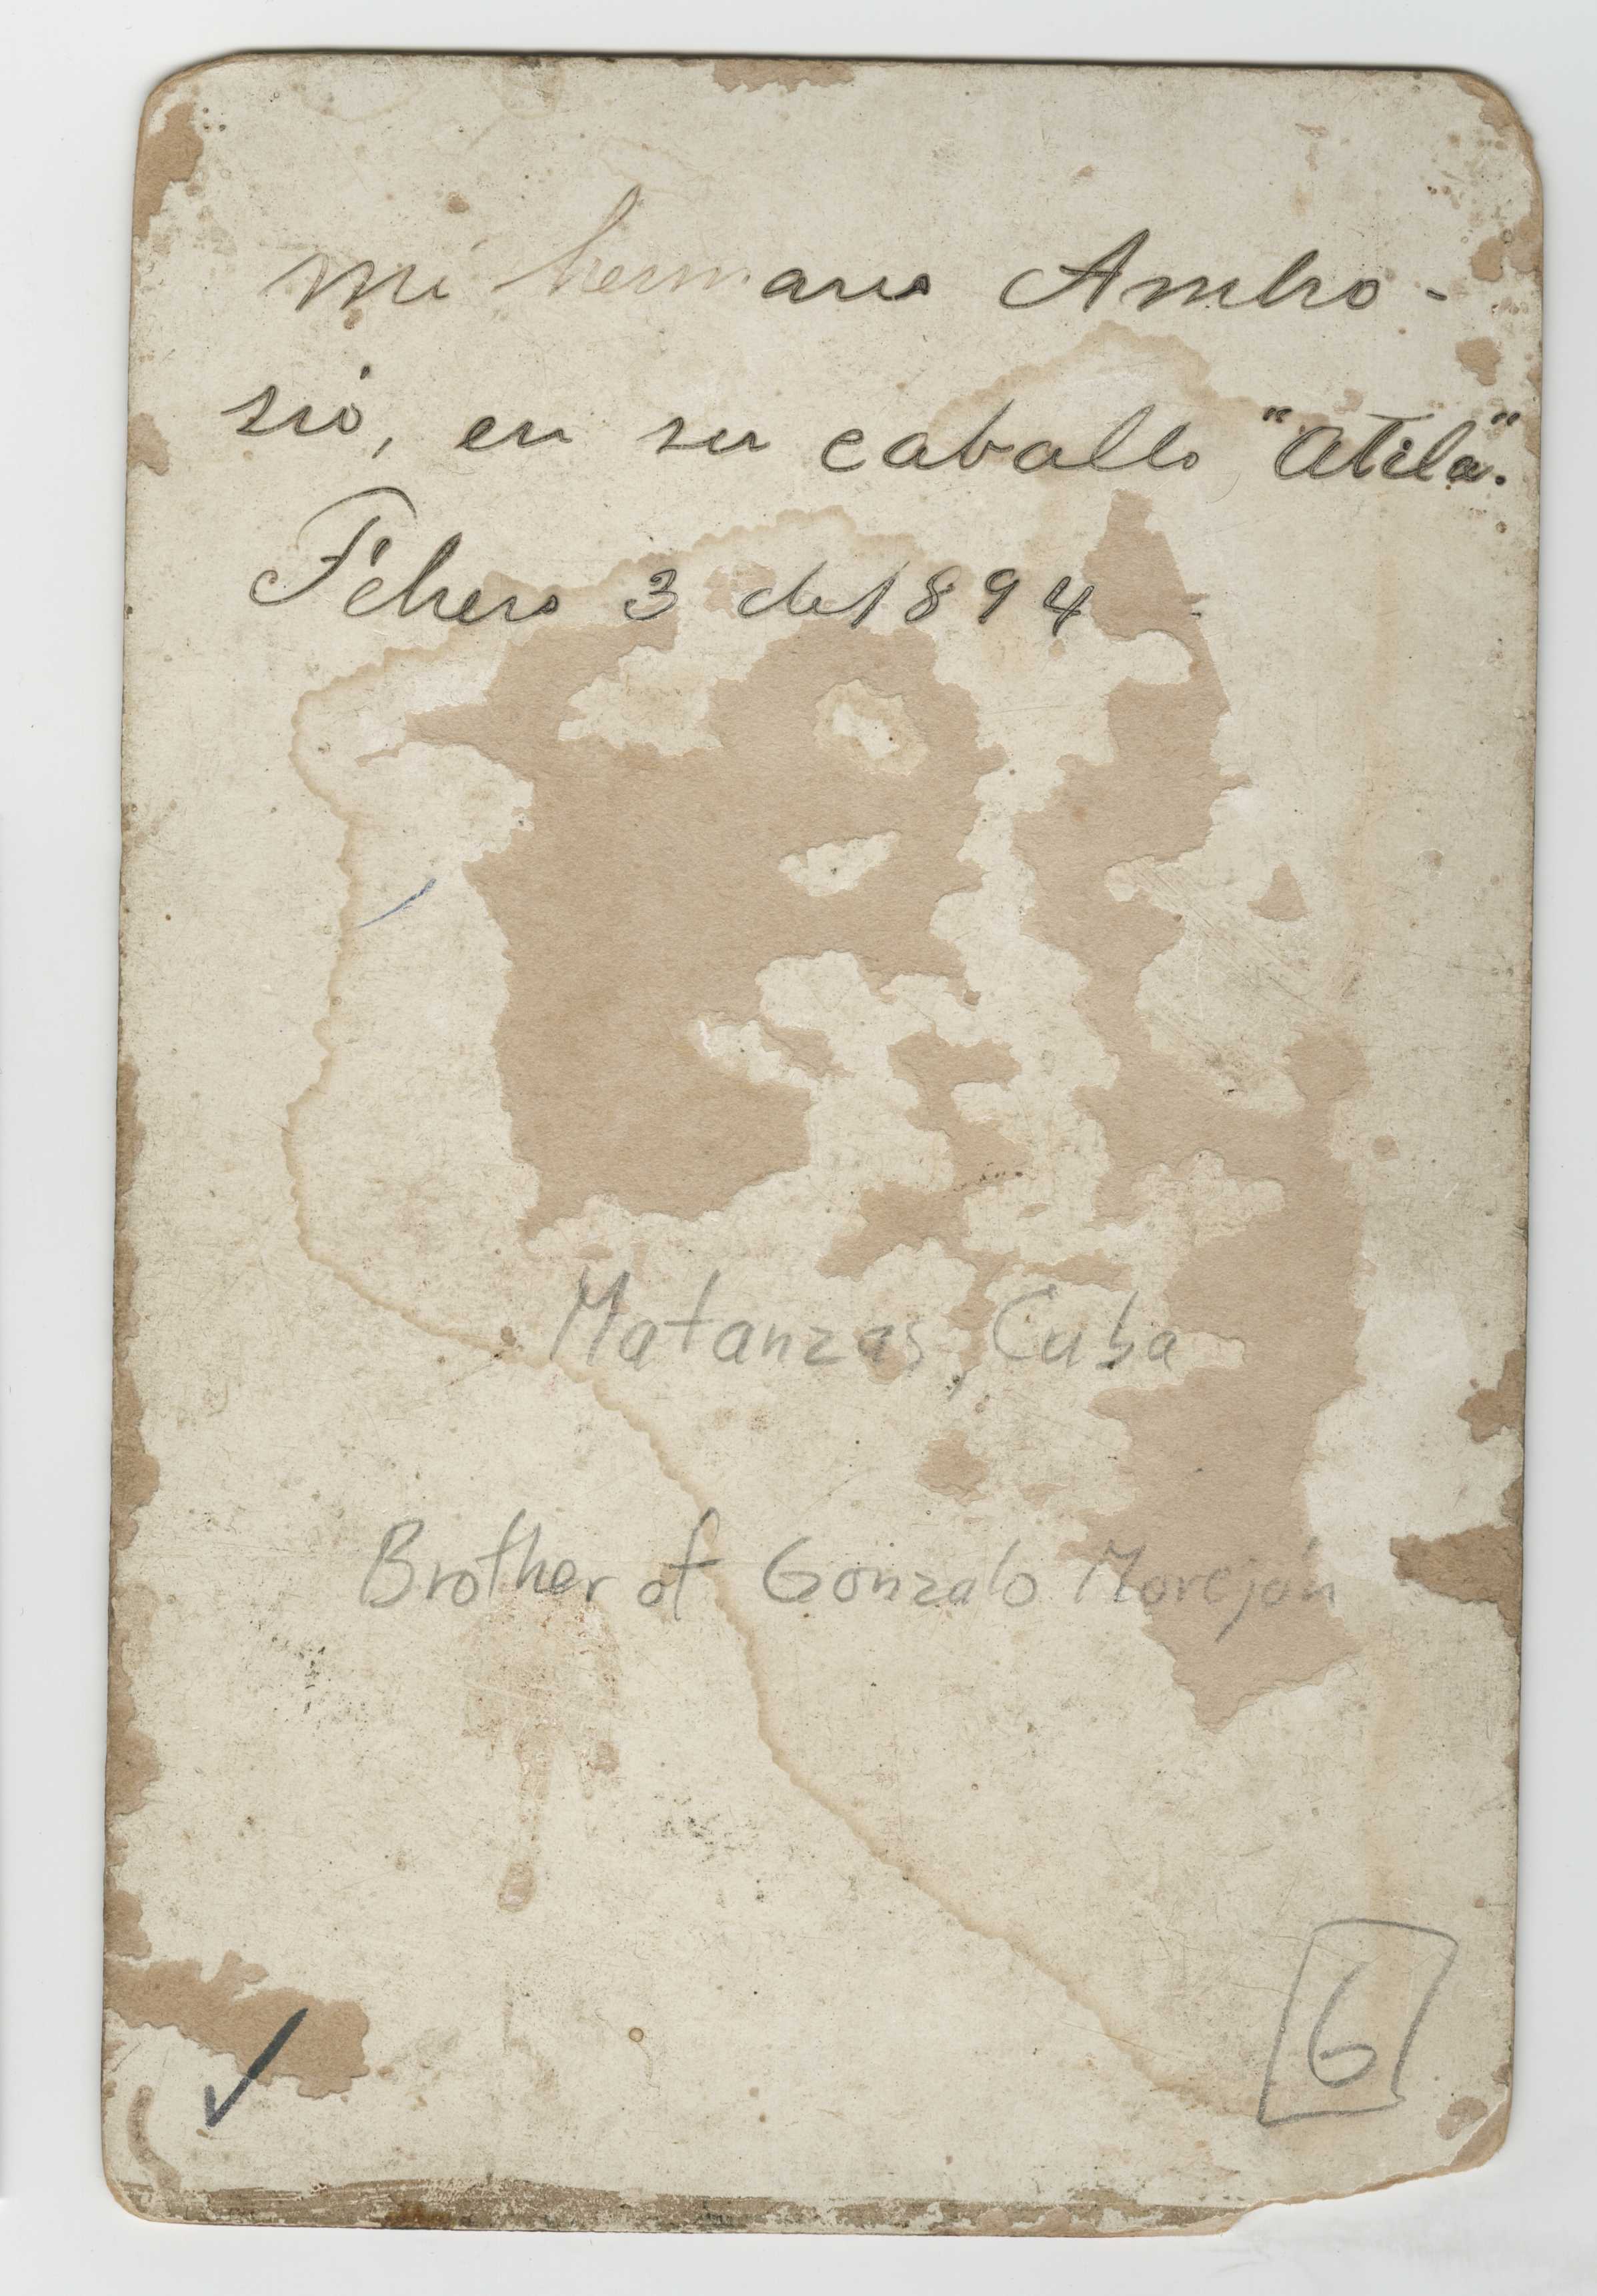 Mi hermano Ambro-
sio, en su caballo "Atila".
Febrero 3 de 1894
Matanzas, Cuba
Brother of Gonzalo Morejón
6